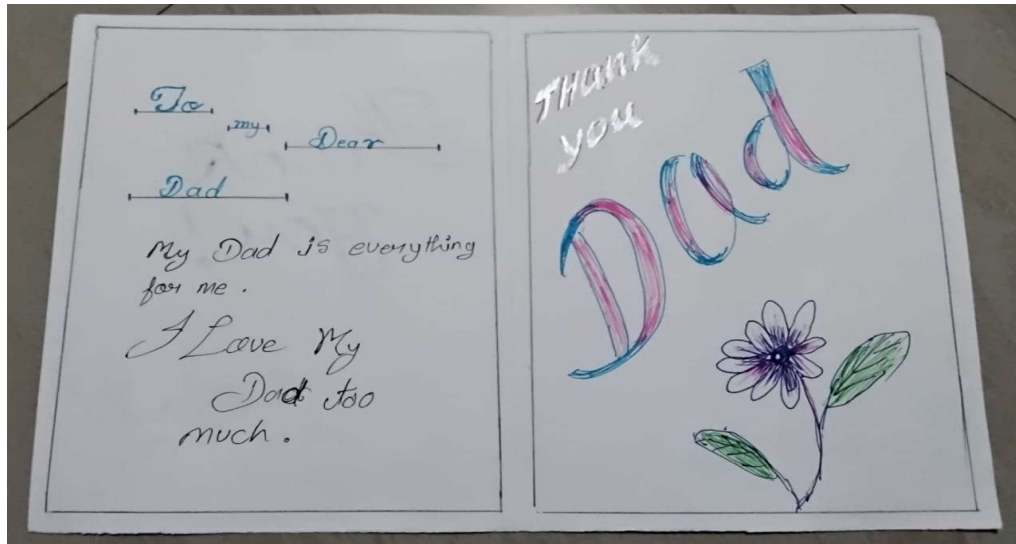 To
my
Dear
Dad
My Dad is everything
for me.
I Love My
Dad too
much.
THank
you
Dad